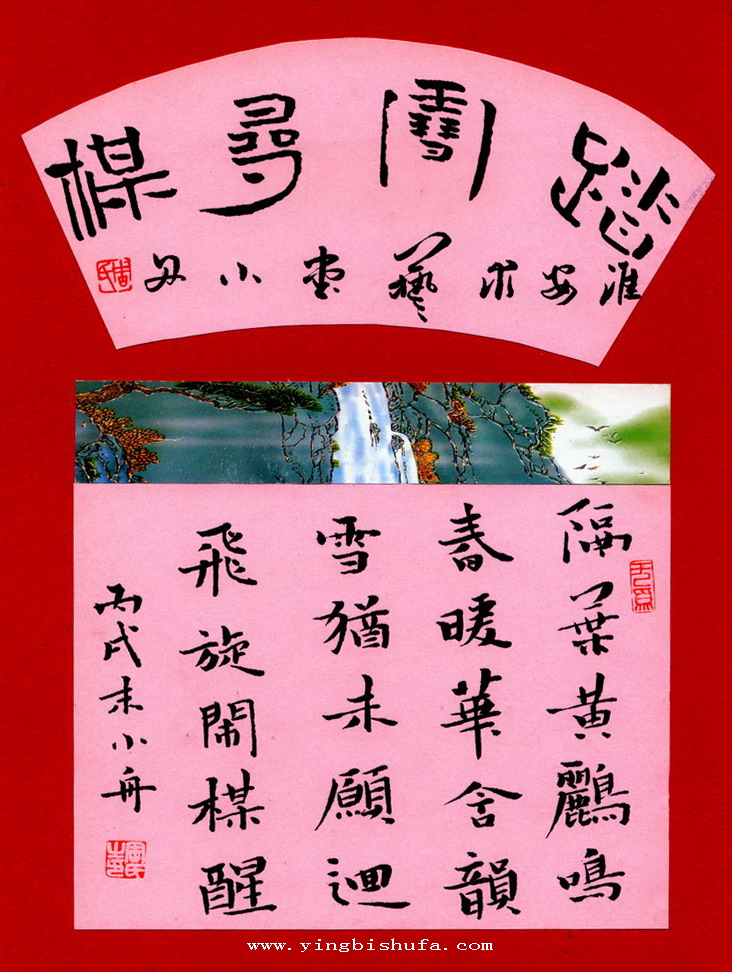 踏雪尋楳
淮安求藝堂小舟
隔葉黄鸝鳴
春暖華含韻
雪猶未願迴
飛旋鬧楳醒
丙戌末小舟
www.yingbishufa.com